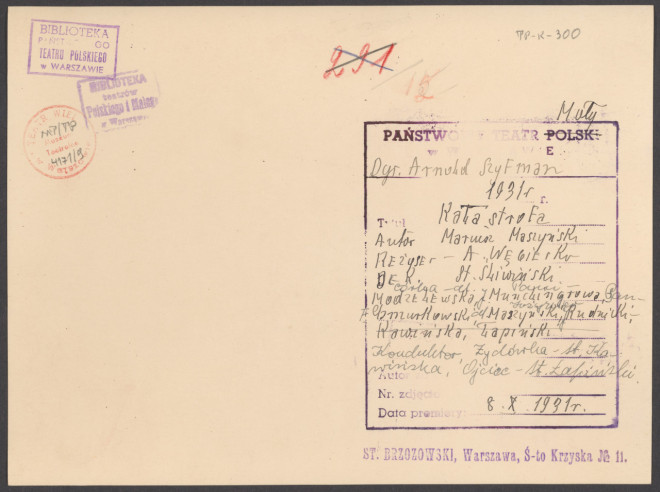 BIBLIOTEKA
PAŃST GO
TEATRU POLSKIEGO
w WARSZAWIE
BIBLIOTEKA
teatrów
Polskiego i Małego
w Warszawie
TEATR WIE
4171/9
291
15
TP-K-300
Mały
PAŃSTWOWY TEATR POLSKI
E
Dyr. Arnold Szyfman
1931 r.
Tytuł Katastrofa
Autor Mariusz Maszyński
Reżyser - A. Węgierko
DEK. St. Śliwiński
Modzelewska, Munclingrowa, Pan-
Żmurkowski, Maszyński, Rudnicki,
Kawińska, Łapiński
Konduktor, Żydówka - St. Ka-
wińska, Ojciec - St. Łapiński.
Autor
Nr. zdjęcia
Data premiery: 8.X.1931r.
ST. BRZOZOWSKI, Warszawa, Ś-to Krzyska № 11.